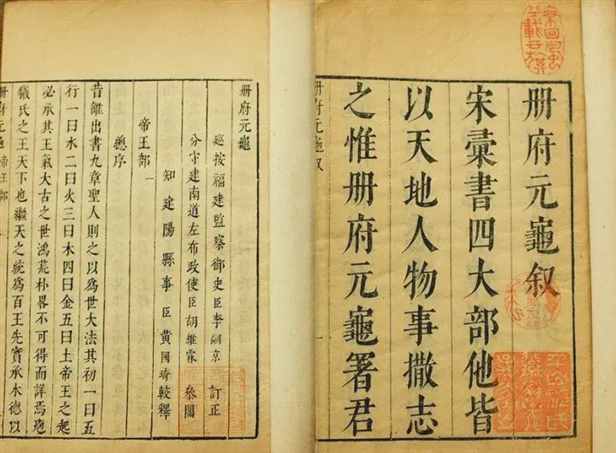 册府元龜叙
宋彙書四大部他皆
以天地人物事撒志
之惟册府元龜署君
册府元龜叙
一
册府元龜
巡按福建監察御史臣李嗣京 訂正
分守建南道左布政使臣胡維霖 叅閱
知建陽縣事臣黃國琦較釋
帝王部一
總序
昔雒出書九章聖人則之以爲世大法其初一曰五
行一曰水二曰火三曰木四曰金五曰土帝王之起
必承其王氣大古之世鴻荒朴畧不可得而詳焉庖
犧氏之王天下也繼天之統爲百王先實承木德以
册府元龜 帝王部